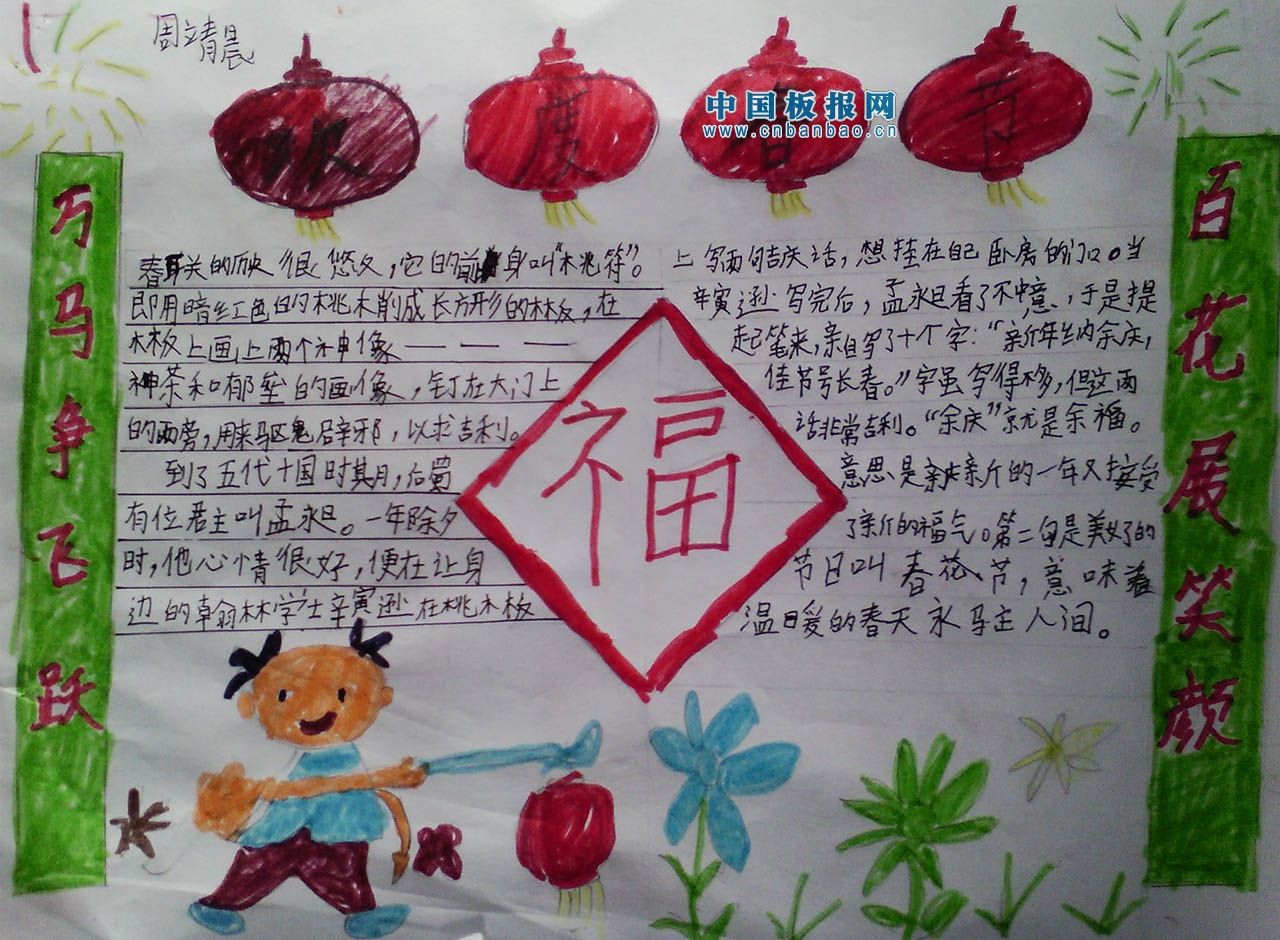 周靖晨
欢度春节
中国板报网
www.cnbanbao.cn
万马争飞跃
百花展笑颜
春联的历史很悠久,它的前身叫“桃符”。
即用暗红色的桃木削成长方形的木板,在
木板上画上两个神像———
神荼和郁垒的画像,钉在大门上
的两旁,用来驱鬼辟邪,以求吉利。
到了五代十国时期,后蜀
有位君主叫孟永旦。一年除夕
时,他心情很好,便在让身
边的翰林学士辛寅逊在桃木板
上写两句吉庆话,想挂在自己卧房的门口。当
辛寅逊写完后,孟永旦看了不中意,于是提
起笔来,亲自写了十个字:“新年纳余庆,
佳节号长春。”字虽写得不多,但这两
话非常吉利。“余庆”就是余福。
意思是新新的一年又接受
了新的福气。第二句是美好的
节日叫春花节,意味着
温暖的春天永驻人间。
福